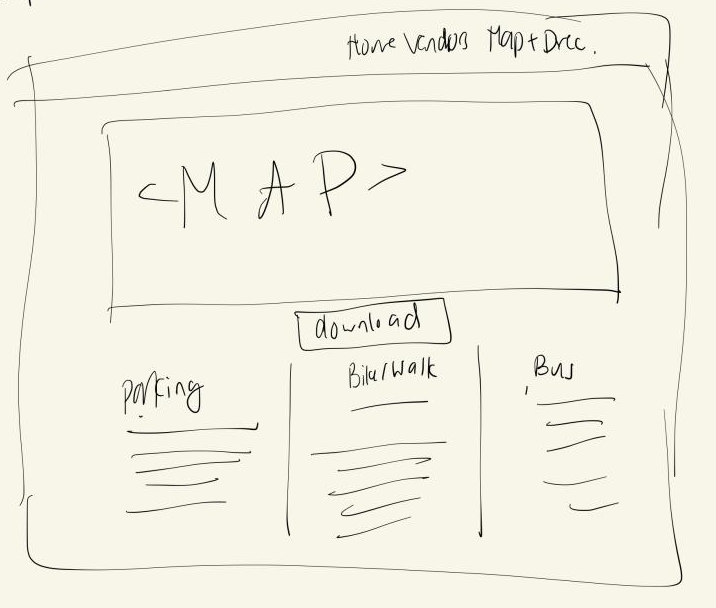 Home Vendors Map + Direc.
<M A P>
download
Parking
Bike/Walk
Bus